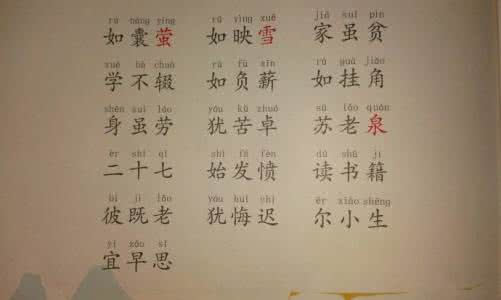 rú náng yíng rú yìng xuě jiā suī pín
如囊萤 如映雪 家虽贫
xué bú chuò rú fù xīn rú guà jiǎo
学不辍 如负薪 如挂角
shēn suī láo yóu kǔ zhuó sū lǎo quán
身虽劳 犹苦卓 苏老泉
èr shí qī shǐ fā fèn dú shū jí
二十七 始发愤 读书籍
bǐ jì lǎo yóu huǐ chí ěr xiǎo shēng
彼既老 犹悔迟 尔小生
yí zǎo sī
宜早思